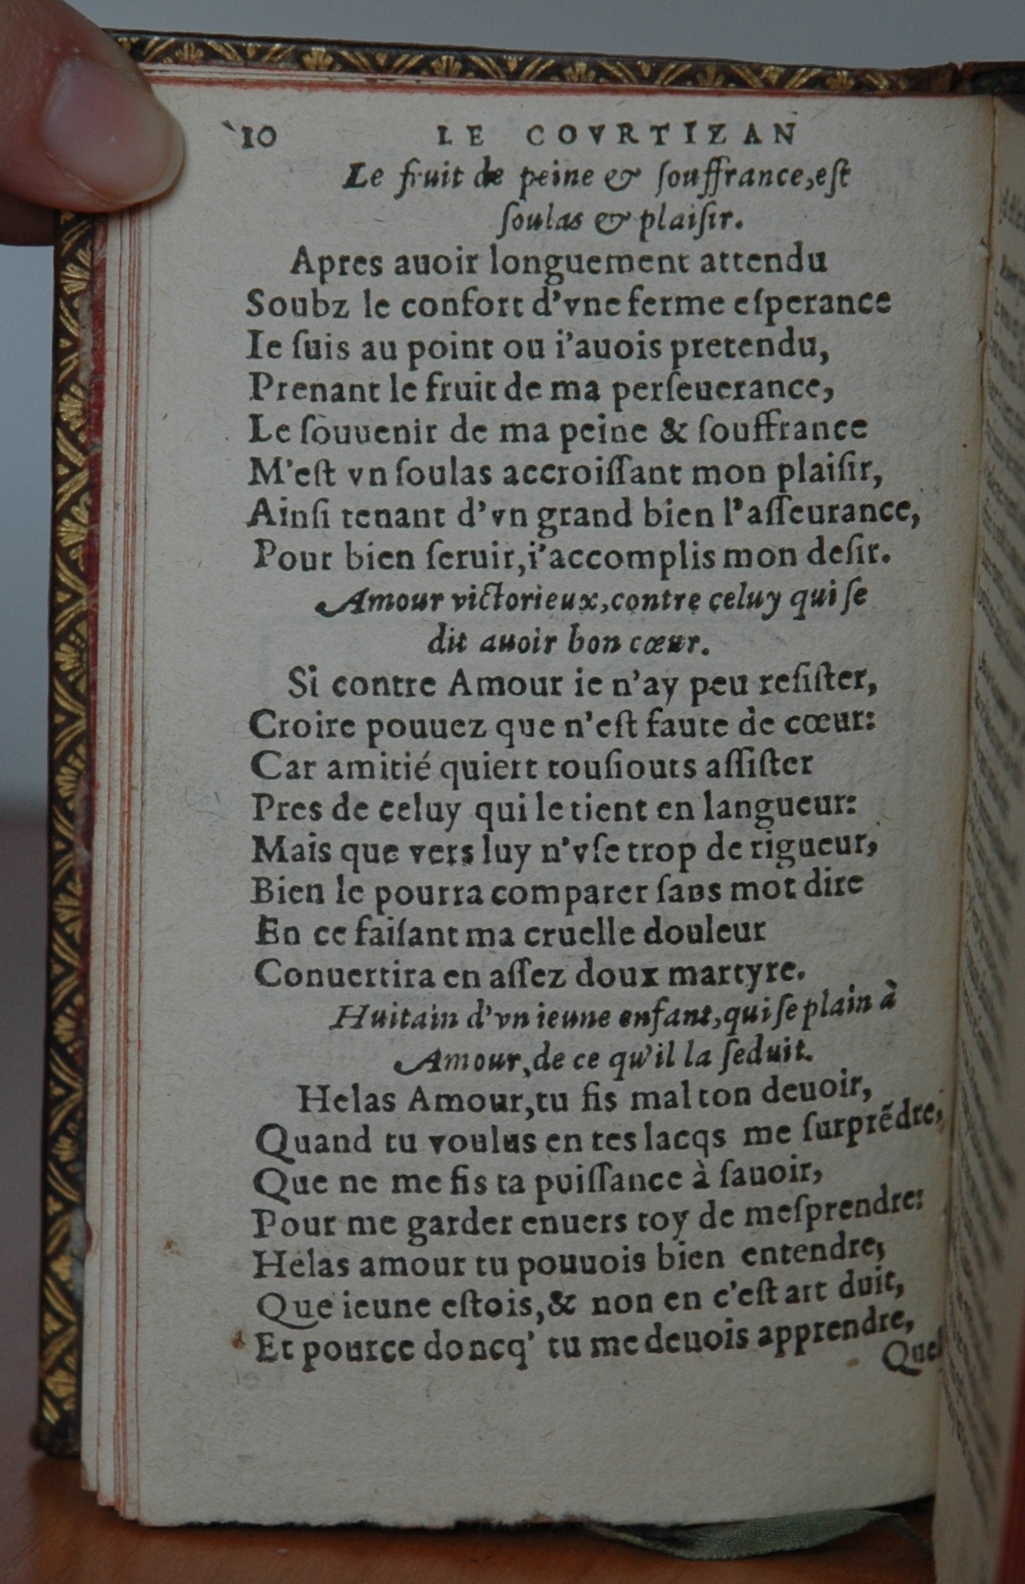 10 LE COVRTIZAN
Le fruit de peine & ſouffrance, eſt
ſoulas & plaiſir.
Apres auoir longuement attendu
Soubz le confort d'vne ferme eſperance
Ie ſuis au point ou i'auois pretendu,
Prenant le fruit de ma perſeuerance,
Le ſouuenir de ma peine & ſouffrance
M'eſt vn ſoulas accroiſſant mon plaiſir,
Ainſi tenant d'vn grand bien l'aſſeurance,
Pour bien ſeruir, i'accomplis mon deſir.
Amour victorieux, contre celuy qui ſe
dit auoir bon cœur.
Si contre Amour ie n'ay peu reſiſter,
Croire pouuez que n'eſt faute de cœur:
Car amitié quiert touſiours aſſiſter
Pres de celuy qui le tient en langueur:
Mais que vers luy n'vſe trop de rigueur,
Bien le pourra comparer ſans mot dire
En ce faiſant ma cruelle douleur
Conuertira en aſſez doux martyre.
Huitain d'vn ieune enfant, qui ſe plain à
Amour, de ce qu'il la ſeduit.
Helas Amour, tu fis mal ton deuoir,
Quand tu voulus en tes lacqs me ſurprẽdre,
Que ne me fis ta puiſſance à ſauoir,
Pour me garder enuers toy de meſprendre:
Helas amour tu pouuois bien entendre,
Que ieune eſtois, & non en c'eſt art duit,
Et pource doncq' tu me deuois apprendre,
Quel